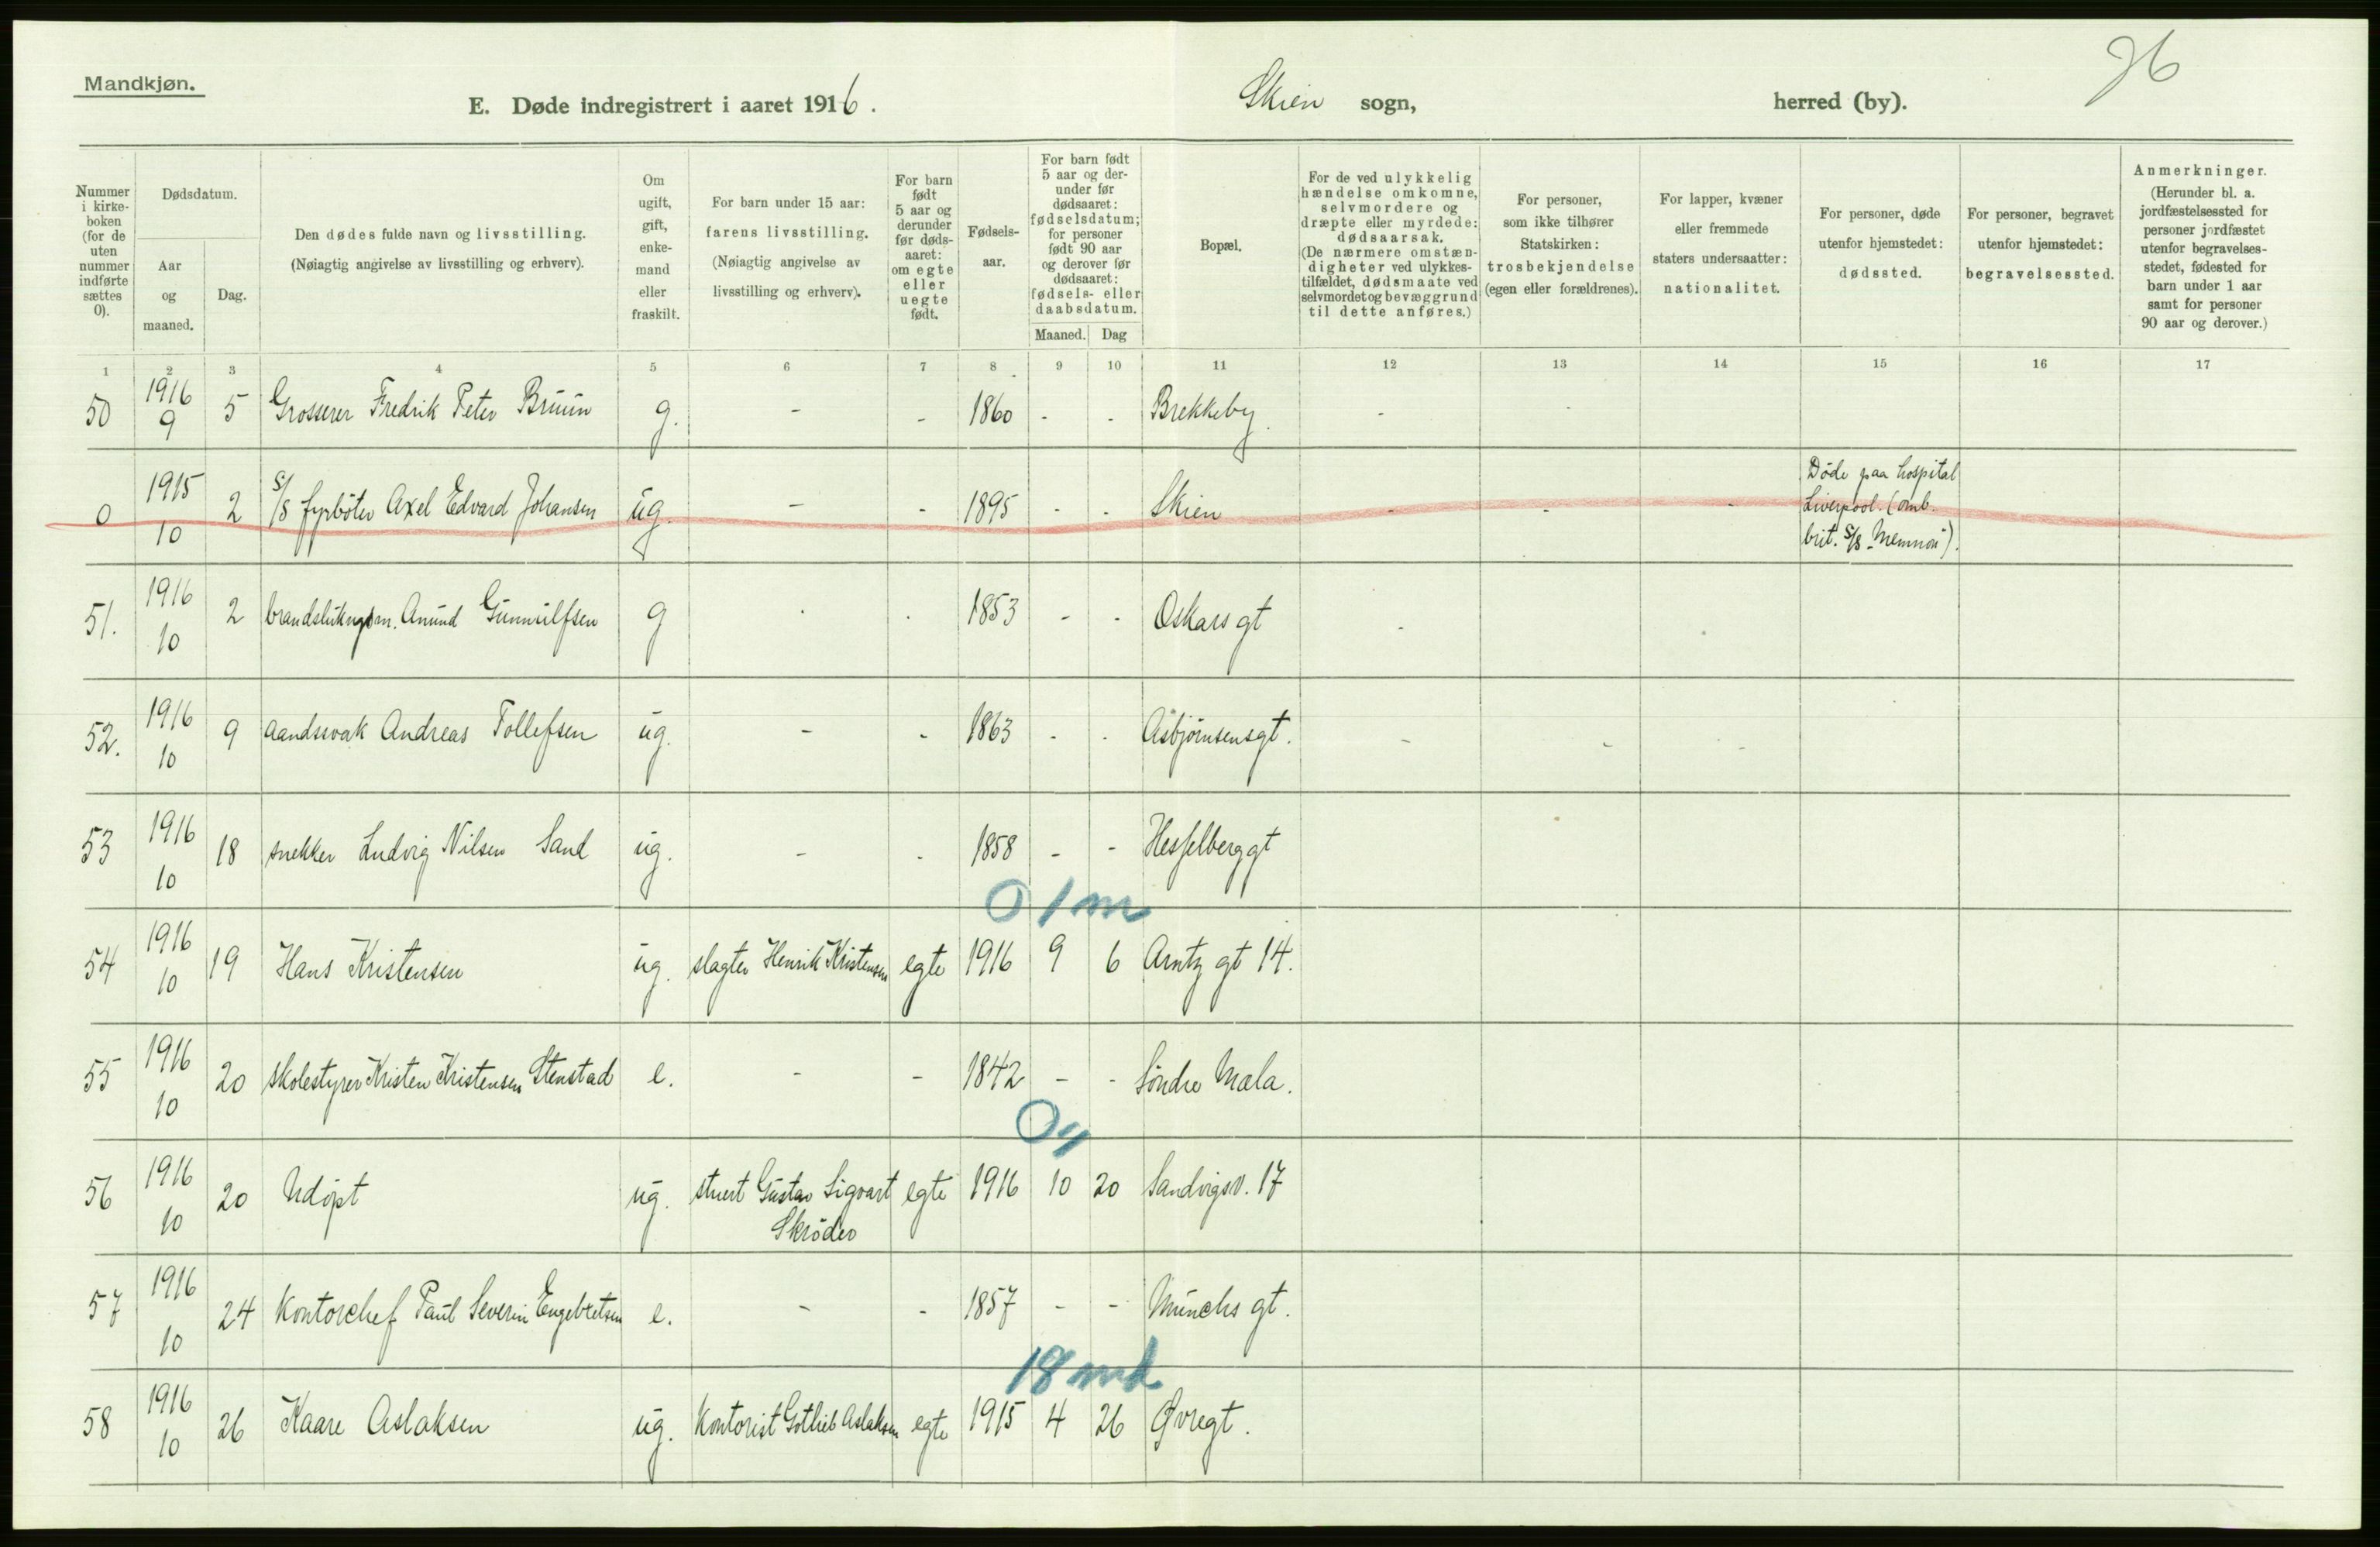 Mandkjøn.
E. Døde indregistrert i aaret 1916. Skien sogn, herred (by).
26
Nummer i kirke- boken (for de uten nummer indførte sættes 0).
Dødsdatum.
Aar og maaned.
Dag.
Den dødes fulde navn og livsstilling.
(Nøiagtig angivelse av livsstilling og erhverv).
Om ugift, gift, enke- mand eller fraskilt.
For barn under 15 aar: farens livsstilling.
(Nøiagtig angivelse av livsstilling og erhverv).
For barn født 5 aar og derunder før døds- aaret: om egte eller uegte født.
Fødsels- aar.
For barn født 5 aar og der- under før dødsaaret: fødselsdatum; for personer født 90 aar og derover før dødsaaret: fødsels- eller daabsdatum.
Maaned. Dag
Bopæl.
For de ved ulykkelig hændelse omkomne, selvmordere og dræpte eller myrdede: dødsaarsak.
(De nærmere omstæn- digheter ved ulykkes- tilfældet, dødsmaate ved selvmordet og bevæggrund til dette anføres.)
For personer, som ikke tilhører Statskirken: trosbekjendelse (egen eller forældrenes).
For lapper, kvæner eller fremmede staters undersaatter: nationalitet.
For personer, døde utenfor hjemstedet: dødssted.
For personer, begravet utenfor hjemstedet: begravelsessted.
Anmerkninger.
(Herunder bl. a. jordfæstelsessted for personer jordfæstet utenfor begravelses- stedet, fødested for barn under 1 aar samt for personer 90 aar og derover.)
1 2 3 4 5 6 7 8 9 10 11 12 13 14 15 16 17
50 1916 9 5 Grosserer Fredrik Peter Bruun g. - - 1860 - - Brekkeby. - -
0 1915 10 2 S/S fyrbøter Axel Edvard Johansen ug. - - 1895 - - Skien - - - Døde paa hospital
Liverpool. (omb.
brit. S/S "Memnon").
51. 1916 10 2 brandslukngsm. Anund Gunnulfsen g - - 1853 - - Oskars gt -
52. 1916 10 9 aandssvak Andreas Tollefsen ug. - - 1863 - - Asbjørnsensgt. - - -
53 1916 10 18 snekker Ludvig Nilsen Sand ug. - - 1858 - - Hesselberggt
0 1 m
54 1916 10 19 Hans Kristensen ug. slagter Henrik Kristensen egte 1916 9 6 Arntz gt 14.
55 1916 10 20 skolestyrer Kristen Kristensen Stenstad e. - - 1842 - - Søndre Mæla.
56 1916 10 20 Udøpt ug. stuert Gustav Sigvart egte 1916 10 20 Sandvigsv. 17
Skrøder
57 1916 10 24 Kontorchef Paul Severin Engebretsen e. - - 1857 - - Munchs gt.
18 md
58 1916 10 26 Kaare Aslaksen ug. Kontorist Gotlieb Aslaksen egte 1915 4 26 Øvregt.